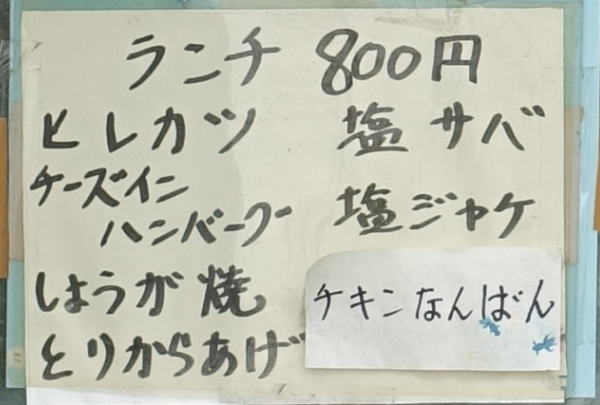 ランチ 800円
ヒレカツ
チーズイン
ハンバーグ
しょうが焼
とりからあげ
塩サバ
塩ジャケ
チキンなんばん